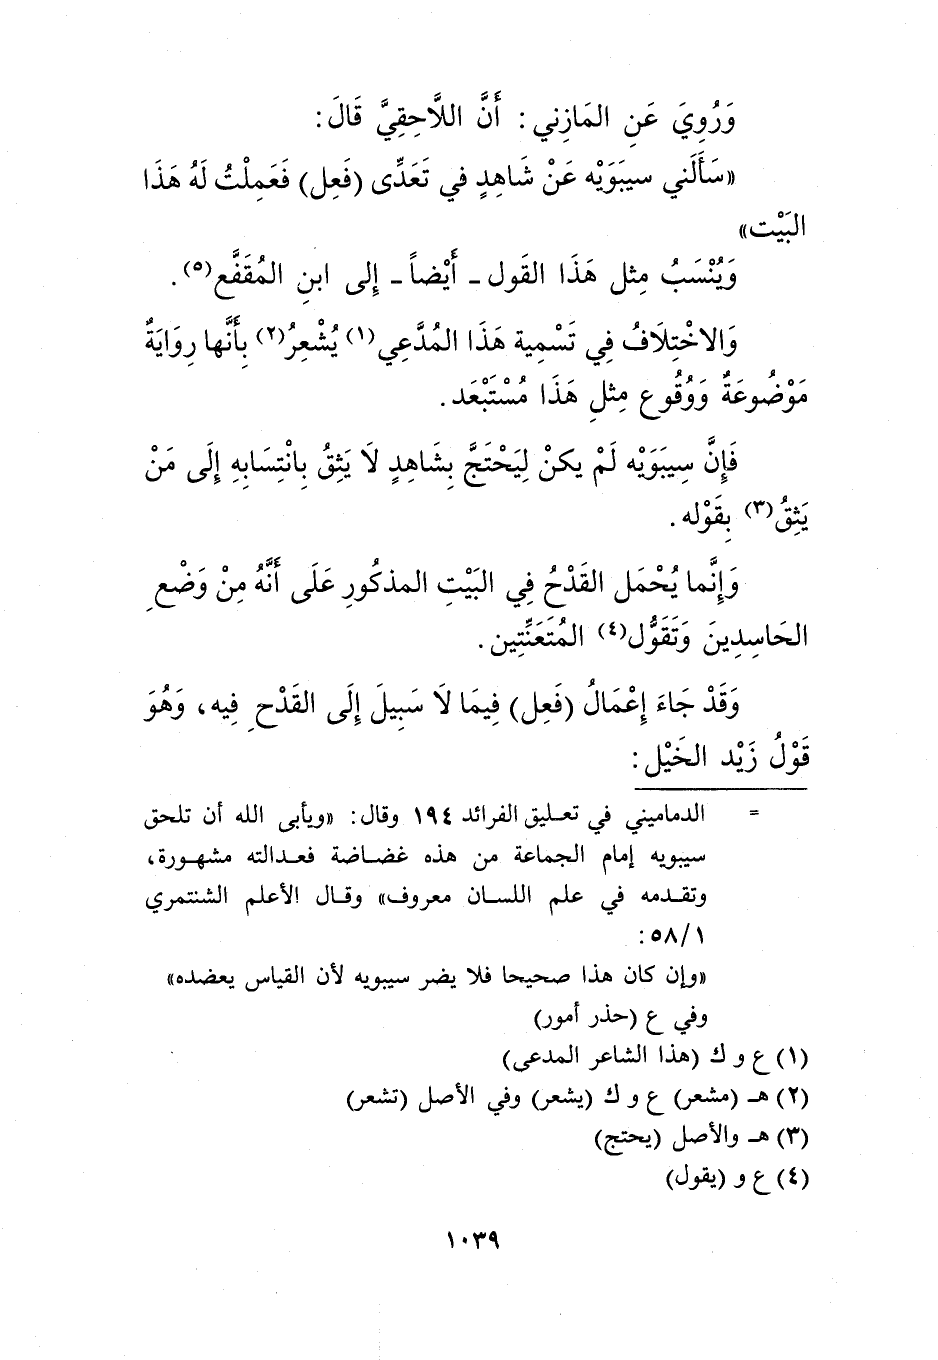 وَرُوِيَ عَنِ المَازِني : أَنَّ اللَّاحِقِيَّ قَالَ :
«سَأَلَني سيبَوَيْه عَنْ شَاهِدٍ في تَعَدِّى (فَعِل) فَعَمِلْتُ لَهُ هَذَا
البَيْت»
وَيُنْسَبُ مِثل هَذَا القَول ـ أَيْضاً ـ إِلى ابنِ المُقَفَّعِ(٥) .
وَالاخْتِلَافُ فِي تَسْمِية هَذَا المُدَّعِي(١) يُشْعِرُ(٢) بِأَنَّها رِوَايَةٌ
مَوْضُوعَةٌ وَوُقُوع مِثلِ هَذَا مُسْتَبْعَد .
فَإِنَّ سِيبَوَيْه لَمْ يكنْ لِيَحْتَجَّ بِشَاهِدٍ لَا يَثِقُ بِانْتِسَابِهِ إِلَى مَنْ
يَثِقُ(٣) بِقَوْله .
وَإِنَّما يُحْمَل القَدْحُ فِي البَيْتِ المذكُورِ عَلَى أَنَّهُ مِنْ وَضْعِ
الحَاسِدِينَ وَتَقَوُّل(٤) المُتَعَنِّتِين .
وَقَدْ جَاءَ إِعْمَالُ (فَعِل) فِيمَا لَا سَبِيلَ إِلَى القَدْحِ فِيه، وَهُوَ
قَوْلُ زَيْد الخَيْل :
= الدماميني في تعليق الفرائد ١٩٤ وقال: «ويأبى الله أن تلحق
سيبويه إمام الجماعة من هذه غضاضة فعدالته مشهورة،
وتقدمه في علم اللسان معروف» وقال الأعلم الشنتمري
٥٨/١ :
«وإن كان هذا صحيحا فلا يضر سيبويه لأن القياس يعضده»
وفي ع (حذر أمور)
(١) ع و ك (هذا الشاعر المدعى)
(٢) هـ (مشعر) ع و ك (يشعر) وفي الأصل (تشعر)
(٣) هـ والأصل (يحتج)
(٤) ع و (يقول)
١٠٣٩